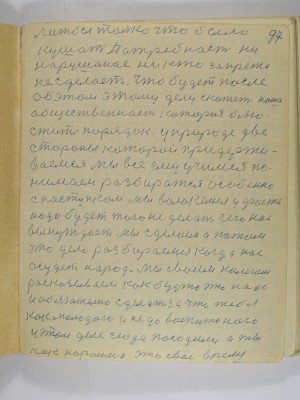 97
лишь только что было
кушат Патребнаст ни
нарушаное никто запрета
не сделает. Что будет после
об этом этому делу скажет наша
общественнаст которыя блю
стит порядок. У природе две
стороны которой придержи-
ваемся мы все ему учимся по-
нимаем разбиратся особенно
с паступком мы
надо будет того не делат чего нас
вынуждает мы сделаем а патом
это дело разбираемся когда нас
осудет народ. Мы своем налогом
как будто это надо
и обязателно сделат за что тебя
как молодого и не до воспитаного
у этом деле сюда посодили а ты
как хорошего это свае врему